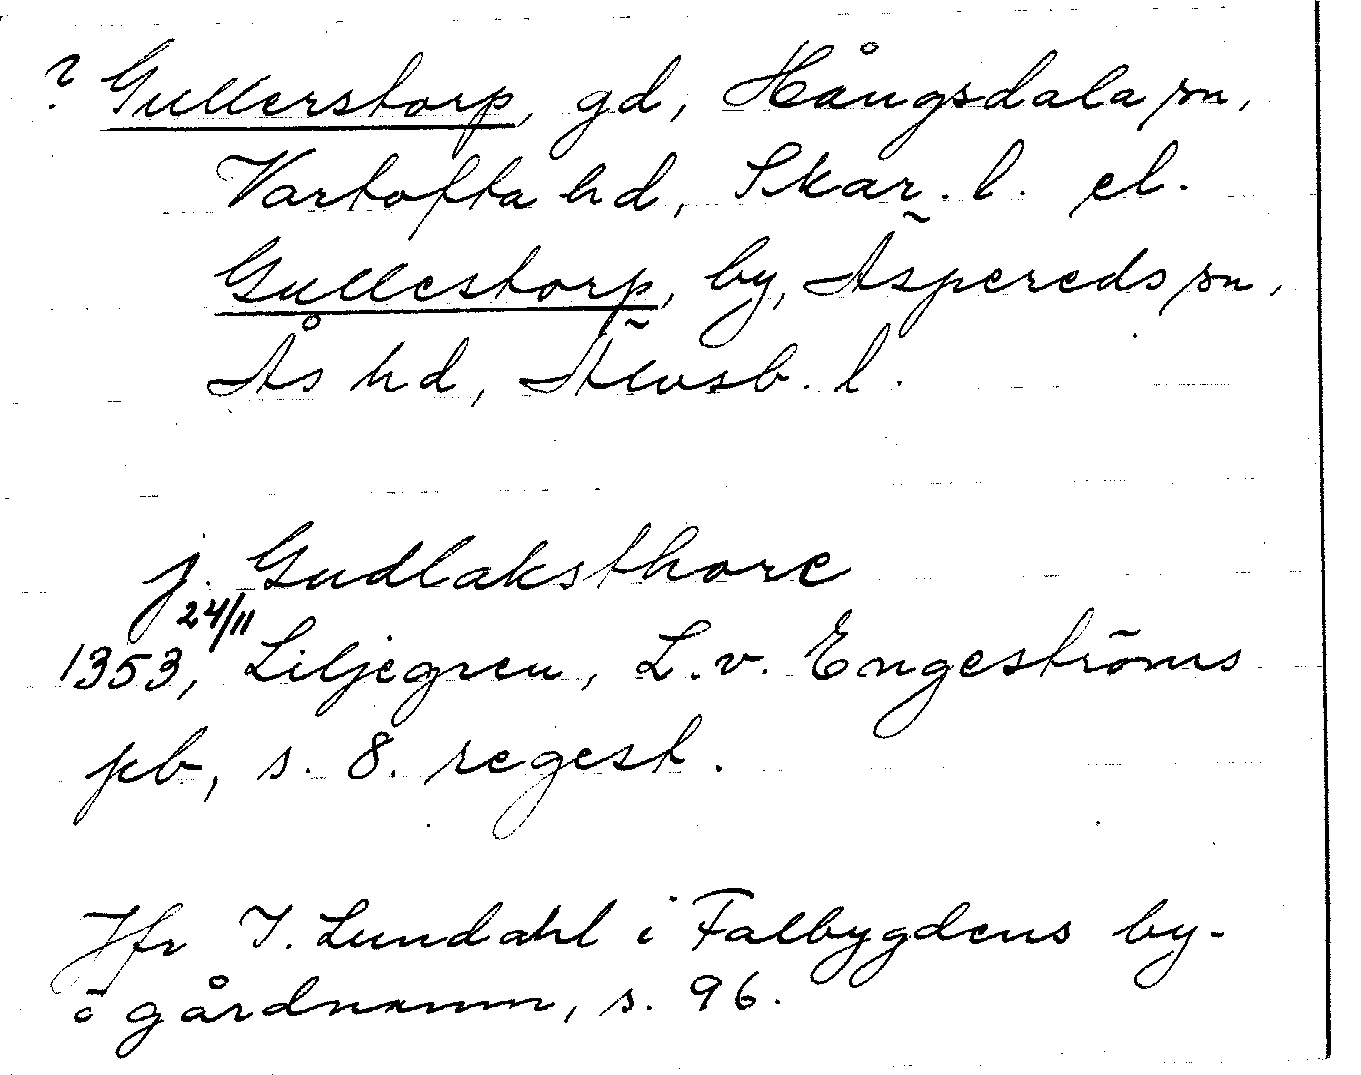 ? Gullerstorp, gd, Hångsdala sn,
Vartofta hd, Skar. l. el.
Gullestorp, by, Äspereds sn,
Ås hd, Älvsb. l.
j. Gudlaksthorc
24/11
1353, Liljegren, L. v. Engeströms
pb, s. 8. regest.
Jfr I. Lundahl i Falbygdens by-
o gårdnamn, s. 96.